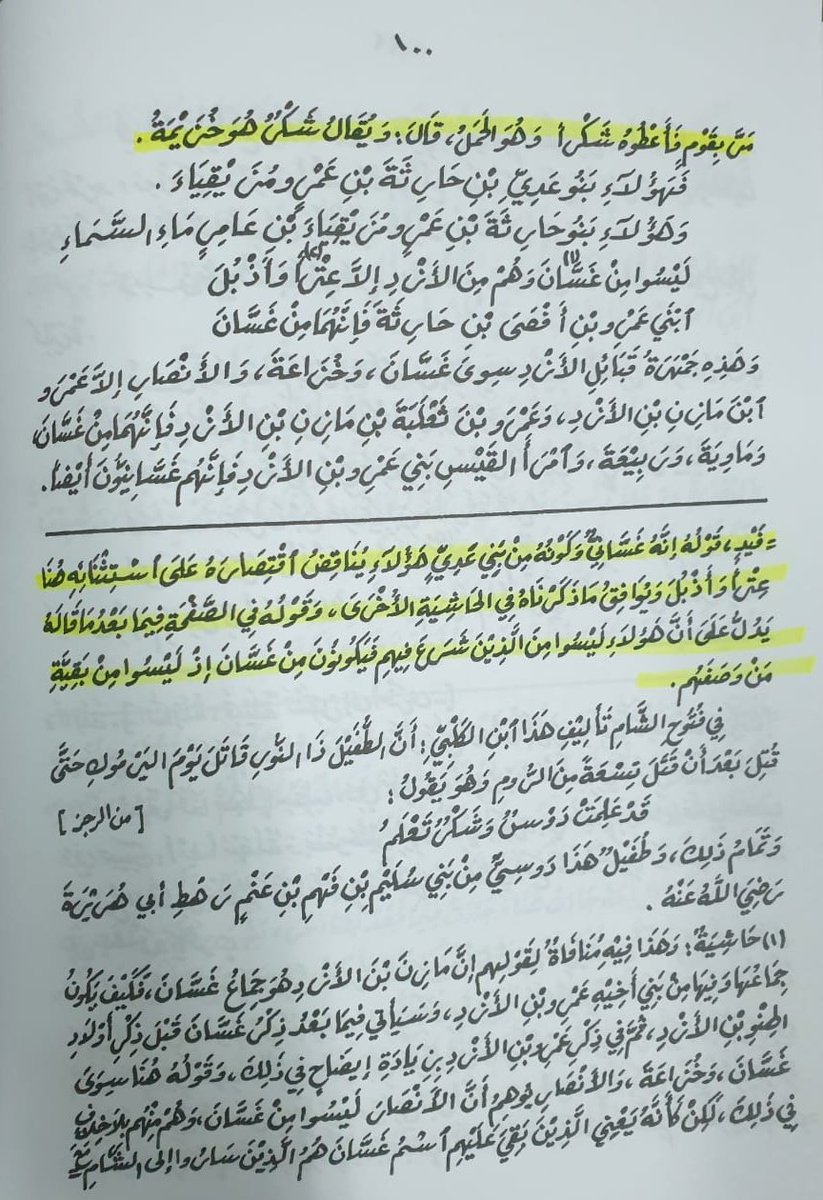 ١٠٠
مَرَّ بِقَوْمٍ فَأَعْطَوْهُ شَكْراً وَهُوَ الْحَمَلُ، قَالَ: وَيُقَالُ شَكْرٌ هُوَ خُزَيْمَةُ.
فَهَؤُلَاءِ بَنُو عَدِيِّ بْنِ حَارِثَةَ بْنِ عَمْرٍو مُزَيْقِيَاءَ.
وَهَؤُلَاءِ بَنُو حَارِثَةَ بْنِ عَمْرٍو مُزَيْقِيَاءَ بْنِ عَامِرٍ مَاءِ السَّمَاءِ
لَيْسُوا مِنْ غَسَّانَ(١) وَهُمْ مِنَ الْأَزْدِ إِلَّا عِتْراً وَأَذْبُلَ
ابْنَيْ عَمْرِو بْنِ أَفْصَى بْنِ حَارِثَةَ فَإِنَّهُمَا مِنْ غَسَّانَ
وَهَذِهِ جَمْهَرَةُ قَبَائِلِ الْأَزْدِ سِوَى غَسَّانَ، وَخُزَاعَةَ، وَالْأَنْصَارِ إِلَّا عَمْرَو
ابْنَ مَازِنِ بْنِ الْأَزْدِ، وَعَمْرَو بْنَ ثَعْلَبَةَ بْنِ مَازِنِ بْنِ الْأَزْدِ فَإِنَّهُمَا مِنْ غَسَّانَ،
وَمَاوِيَةَ، وَرَبِيْعَةَ، وَامْرَأَ الْقَيْسِ بَنِي عَمْرِو بْنِ الْأَزْدِ فَإِنَّهُمْ غَسَّانِيُّونَ أَيْضاً.
= فَيْدٍ، قَوْلُهُ إِنَّهُ غَسَّانِيٌّ وَكَوْنُهُ مِنْ بَنِي عَدِيٍّ هَؤُلَاءِ يُنَاقِضُ اقْتِصَارَهُ عَلَى اسْتِثْنَائِهِ هُنَا
عِتْراً وَأَذْبُلَ وَيُوَافِقُ مَا ذَكَرْنَاهُ فِي الْحَاشِيَةِ الْأُخْرَى، وَقَوْلُهُ فِي الصَّفْحَةِ فِيمَا بَعْدُ مَا قَالَهُ
يَدُلُّ عَلَى أَنَّ هَؤُلَاءِ لَيْسُوا مِنَ الَّذِينَ شَرَعَ فِيهِمْ فَيَكُونُونَ مِنْ غَسَّانَ إِذْ لَيْسُوا مِنْ بَقِيَّةِ
مَنْ وَصَفَهُم.
فِي فُتُوحِ الشَّامِ تَأْلِيفِ هَذَا ابْنِ الْكَلْبِيِّ: أَنَّ الطُّفَيْلَ ذَا النُّورِ قَاتَلَ يَوْمَ الْيَرْمُوكِ حَتَّى
قُتِلَ بَعْدَ أَنْ قَتَلَ تِسْعَةً مِنَ الرُّومِ وَهُوَ يَقُولُ:
قَدْ عَلِمَتْ دَوْسٌ وَشَكْرٌ تَعْلَمُ [من الرجز]
وَتَمَامُ ذَلِكَ، وَطُفَيْلٌ هَذَا دَوسِيٌّ مِنْ بَنِي سُلَيْمِ بْنِ فَهْمِ بْنِ غَنْمٍ رَهْطِ أَبِي هُرَيْرَةَ
رَضِيَ اللَّهُ عَنْهُ.
(١) حَاشِيَةٌ: وَهَذَا فِيْهِ مُنَافَاةٌ لِقَوْلِهِم إِنَّ مَازِنَ بْنَ الْأَزْدِ هُوَ جِمَاعُ غَسَّانَ، فَكَيْفَ يَكُونُ
جِمَاعُهَا وَفِيهَا مِنْ بَنِي أَخِيْهِ عَمْرِو بْنِ الْأَزْدِ، وَسَيَأْتِي فِيمَا بَعْدُ ذِكْرُ غَسَّانَ قَبْلَ ذِكْرِ أَوْلَادِ
الهِنْوِ بْنِ الْأَزْدِ، ثُمَّ فِي ذِكْرِ عَمْرِو بْنِ الْأَزْدِ زِيَادَةُ إِيضَاحٍ فِي ذَلِكَ، وَقَوْلُهُ هُنَا سِوَى
غَسَّانَ، وَخُزَاعَةَ، وَالْأَنْصَارِ يُوهِمُ أَنَّ الْأَنْصَارَ لَيْسُوا مِنْ غَسَّانَ، وَهُمْ مِنْهُم بِلَا خِلَافٍ
فِي ذَلِكَ، لَكِنْ كَأَنَّهُ يَعْنِي الَّذِينَ بَقِيَ عَلَيْهِم اسْمُ غَسَّانَ هُمُ الَّذِيْنَ سَارُوا إِلَى الشَّامِ